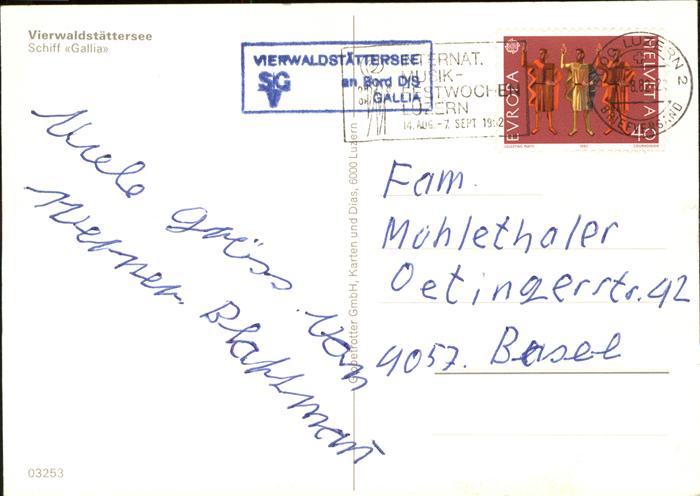 Vierwaldstättersee
Schiff «Gallia»
VIERWALDSTÄTTERSEE
SGV
an Bord D/S
GALLIA
INTERNAT.
MUSIK-
FESTWOCHEN
LUZERN
14. AUG. - 7. SEPT 1982
LUZERN 2
BRIEFVERSAND
EUROPA
HELVETIA
40
1982
COURVOISIER
Viele Grüss von
Werner Blattmann
Globetrotter GmbH, Karten und Dias, 6000 Luzern
Fam.
Mühlethaler
Oetingerstr. 42
4057. Basel
03253